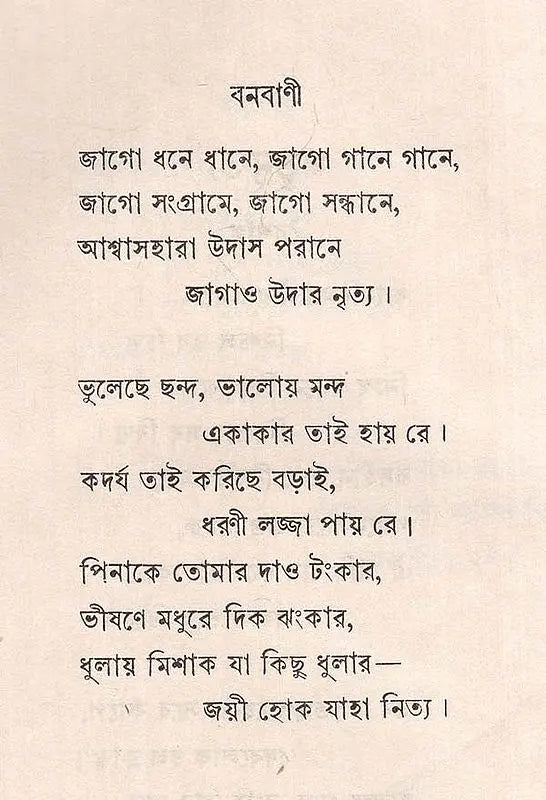 বনবাণী
জাগো ধনে ধানে, জাগো গানে গানে,
জাগো সংগ্রামে, জাগো সন্ধানে,
আশ্বাসহারা উদাস পরানে
জাগাও উদার নৃত্য।
ভুলেছে ছন্দ, ভালোয় মন্দ
একাকার তাই হায় রে।
কদর্য তাই করিছে বড়াই,
ধরণী লজ্জা পায় রে।
পিনাকে তোমার দাও টংকার,
ভীষণে মধুরে দিক ঝংকার,
ধুলায় মিশাক যা কিছু ধুলার—
জয়ী হোক যাহা নিত্য।